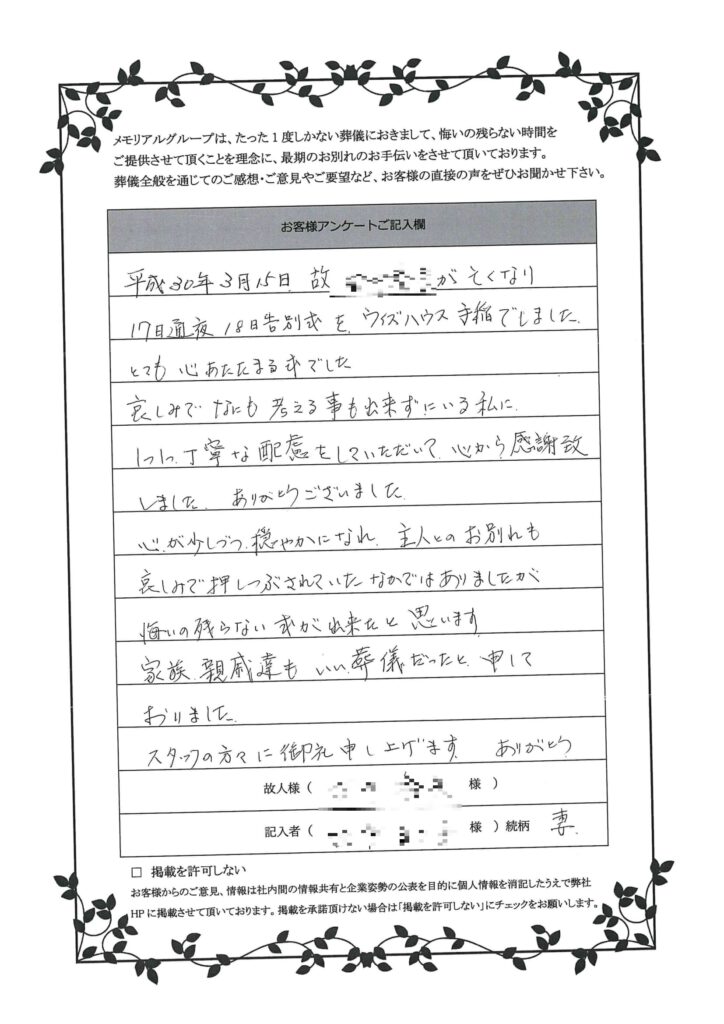 メモリアルグループは、たった1度しかない葬儀におきまして、悔いの残らない時間を
ご提供させて頂くことを理念に、最期のお別れのお手伝いをさせて頂いております。
葬儀全般を通じてのご感想・ご意見やご要望など、お客様の直接の声をぜひお聞かせ下さい。
お客様アンケートご記入欄
平成30年3月15日 故 が そくなり
17日通夜 18日告別式を、ウィズハウス手稲でしました。
とても心あたたまる式でした
哀しみでなにも考える事も出来ずにいる私に、
1つ1つ、丁寧な配慮をしていただいて、心から感謝致
しました。ありがとうございました。
心が少しづつ、穏やかになれ、主人とのお別れも
哀しみで押しつぶされていたなかではありましたが
悔いの残らない式が出来たと思います
家族、親戚達もいい葬儀だったと、申して
おりました。
スタッフの方々に御礼申し上げます。ありがとう
故人様( 様)
記入者( 様)続柄 妻
□ 掲載を許可しない
お客様からのご意見、情報は社内間の情報共有と企業姿勢の公表を目的に個人情報を消記したうえで弊社
HPに掲載させて頂いております。掲載を承諾頂けない場合は「掲載を許可しない」にチェックをお願いします。